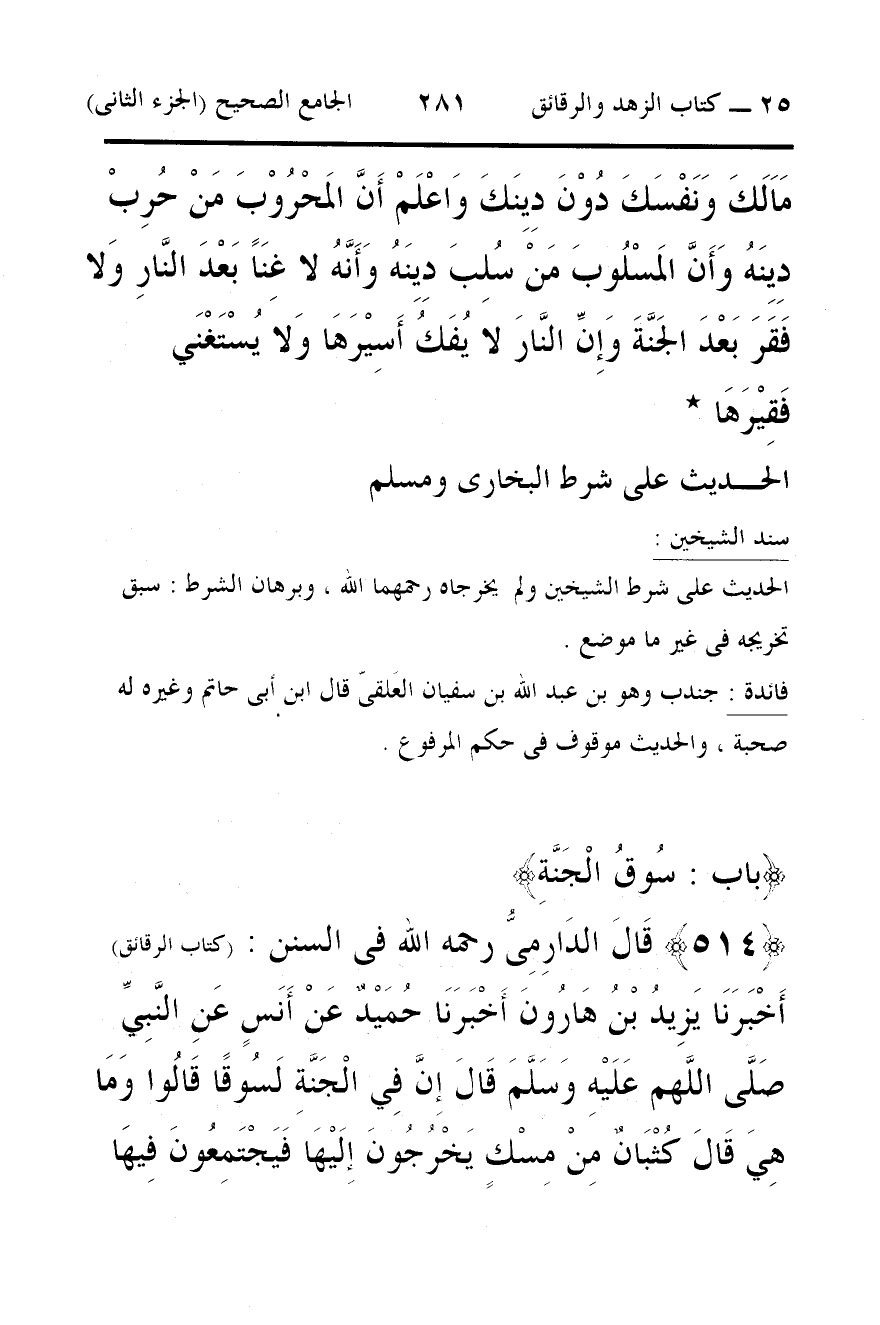 ٢٥ ـــ كتاب الزهد والرقائق ٢٨١ الجامع الصحيح (الجزء الثانى)
مَالَكَ وَنَفْسَكَ دُوْنَ دِينِكَ وَاعْلَمْ أَنَّ المَحْرُوْبَ مَنْ حُرِبْ
دِينَهُ وَأَنَّ المَسْلُوبَ مَنْ سُلِبَ دِينَهُ وَأَنَّهُ لا غِنَاً بَعْدَ النَّارِ وَلا
فَقَرَ بَعْدَ الجَنَّةَ وَإِنِّ النَّارَ لا يُفَكُ أَسِيْرَهَا وَلا يُسْتَغْني
فَقِيْرَهَا *
الحـــديث على شرط البخارى ومسلم
سند الشيخين :
الحديث على شرط الشيخين ولم يخرجاه رحمهما الله ، وبرهان الشرط : سبق
تخريجه فى غير ما موضع .
فائدة : جندب وهو بن عبد الله بن سفيان العَلقىّ قال ابن أبى حاتم وغيره له
صحبة ، والحديث موقوف فى حكم المرفوع .
﴿باب : سُوقُ الْجَنَّةِ﴾
﴿٥١٤﴾ قَالَ الدَارِمِىُّ رحمه الله فى السنن : (كتاب الرقائق)
أَخْبَرَنَا يَزِيدُ بْنُ هَارُونَ أَخْبَرَنَا حُمَيْدٌ عَنْ أَنَسٍ عَنِ النَّبِيِّ
صَلَّى اللَّهم عَلَيْهِ وَسَلَّمَ قَالَ إِنَّ فِي الْجَنَّةِ لَسُوقًا قَالُوا وَمَا
هِيَ قَالَ كُثْبَانٌ مِنْ مِسْكٍ يَخْرُجُونَ إِلَيْهَا فَيَجْتَمِعُونَ فِيهَا